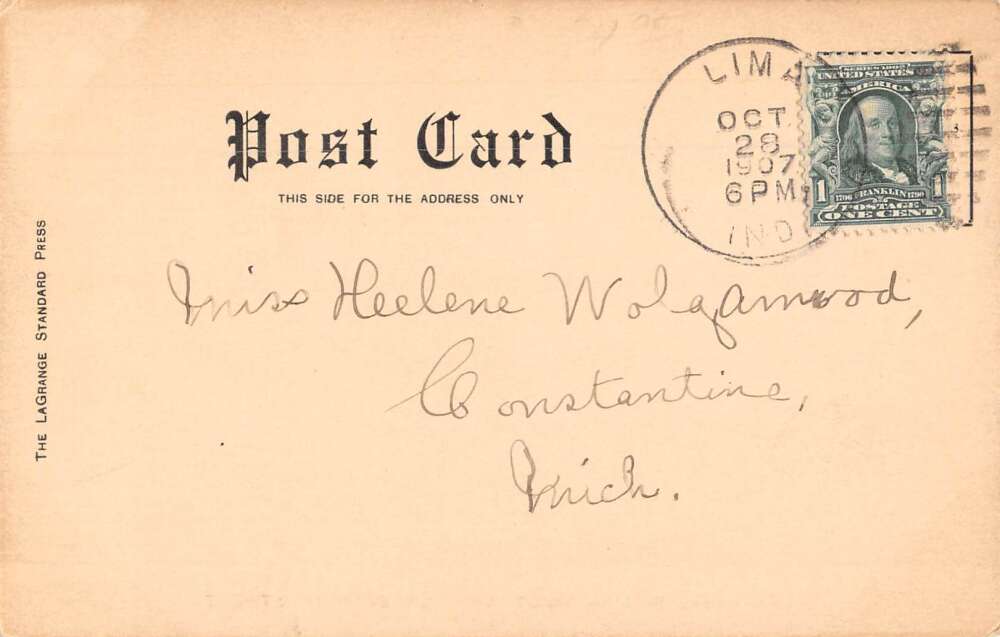 Post Card
THIS SIDE FOR THE ADDRESS ONLY
THE LAGRANGE STANDARD PRESS
LIMA
OCT.
28
1907
6PM
IND
SERIES 1902
UNITED STATES
OF AMERICA
1 1
1706 FRANKLIN 1790
POSTAGE
ONE CENT
Miss Heelene Wolgamwood,
Constantine,
Mich.